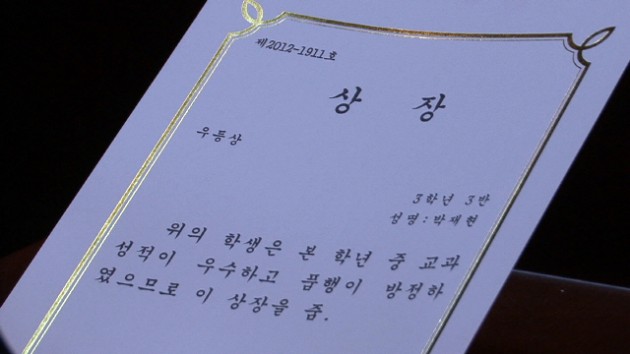 제2012-1911호
상 장
우등상
3학년 3반
성명:박재현
위의 학생은 본 학년 중 교과
성적이 우수하고 품행이 방정하
였으므로 이 상장을 줌.